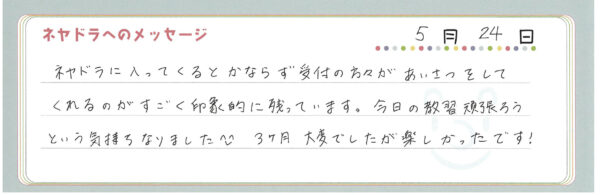 ネヤドラへのメッセージ
5月24日
ネヤドラに入ってくるとかならず受付の方々があいさつをして
くれるのがすごく印象的に残っています。今日の教習頑張ろう
という気持ちなりました^^ 3ヶ月 大変でしたが楽しかったです!